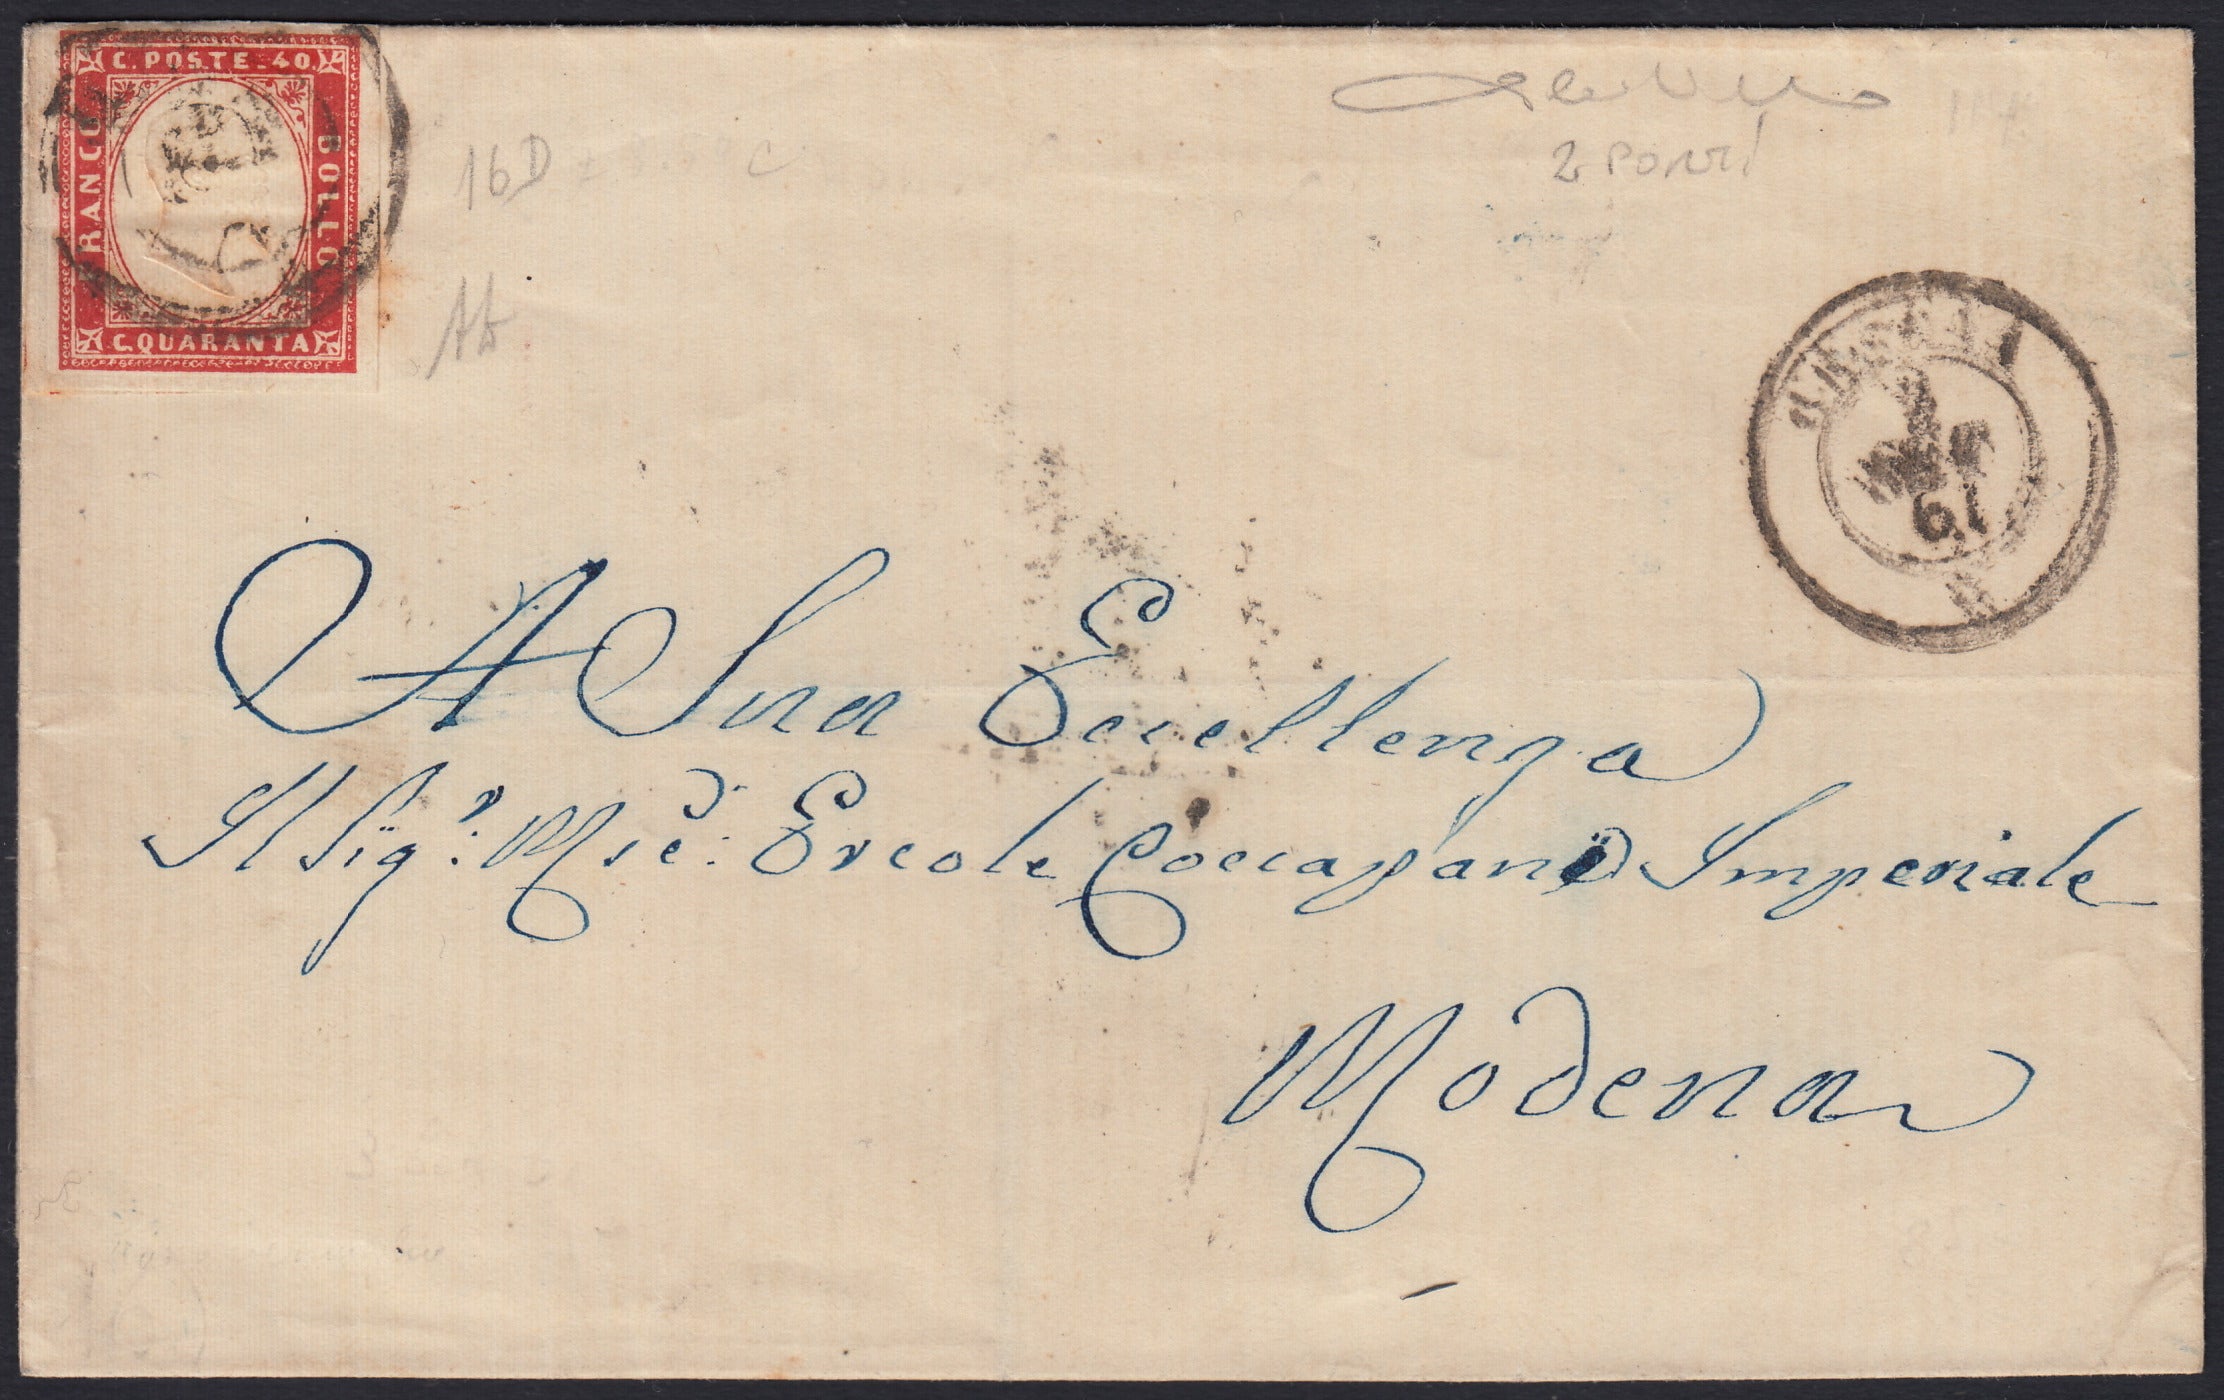 C. POSTE. 40.
FRANCO
BOLLO
C. QUARANTA
16D
Ab
2 PORTI
61
A Sua Eccellenza
Il Sigr: Mse: Ercole Coccapani Imperiale
Modena